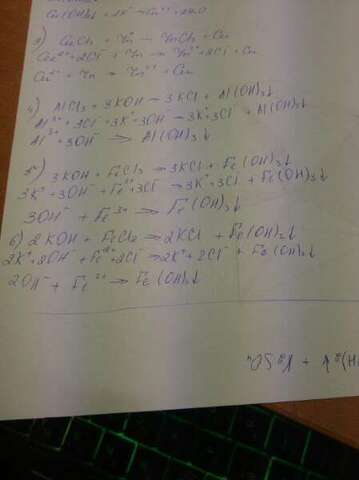 Cu(OH)₂ + 2K⁺
3) CuCl₂ + Zn → ZnCl₂ + Cu
Cu²⁺ + 2Cl⁻ + Zn → Zn²⁺ + 2Cl⁻ + Cu
Cu²⁺ + Zn → Zn²⁺ + Cu
4) AlCl₃ + 3KOH → 3KCl + Al(OH)₃↓
Al³⁺ + 3Cl⁻ + 3K⁺ + 3OH⁻ → 3K⁺ + 3Cl⁻ + Al(OH)₃↓
Al³⁺ + 3OH⁻ → Al(OH)₃↓
5) 3KOH + FeCl₃ → 3KCl + Fe(OH)₃↓
3K⁺ + 3OH⁻ + Fe³⁺ + 3Cl⁻ → 3K⁺ + 3Cl⁻ + Fe(OH)₃↓
3OH⁻ + Fe³⁺ → Fe(OH)₃↓
6) 2KOH + FeCl₂ → 2KCl + Fe(OH)₂↓
2K⁺ + 2OH⁻ + Fe²⁺ + 2Cl⁻ → 2K⁺ + 2Cl⁻ + Fe(OH)₂↓
2OH⁻ + Fe²⁺ → Fe(OH)₂↓
H)₂↓ + K₂SO₄